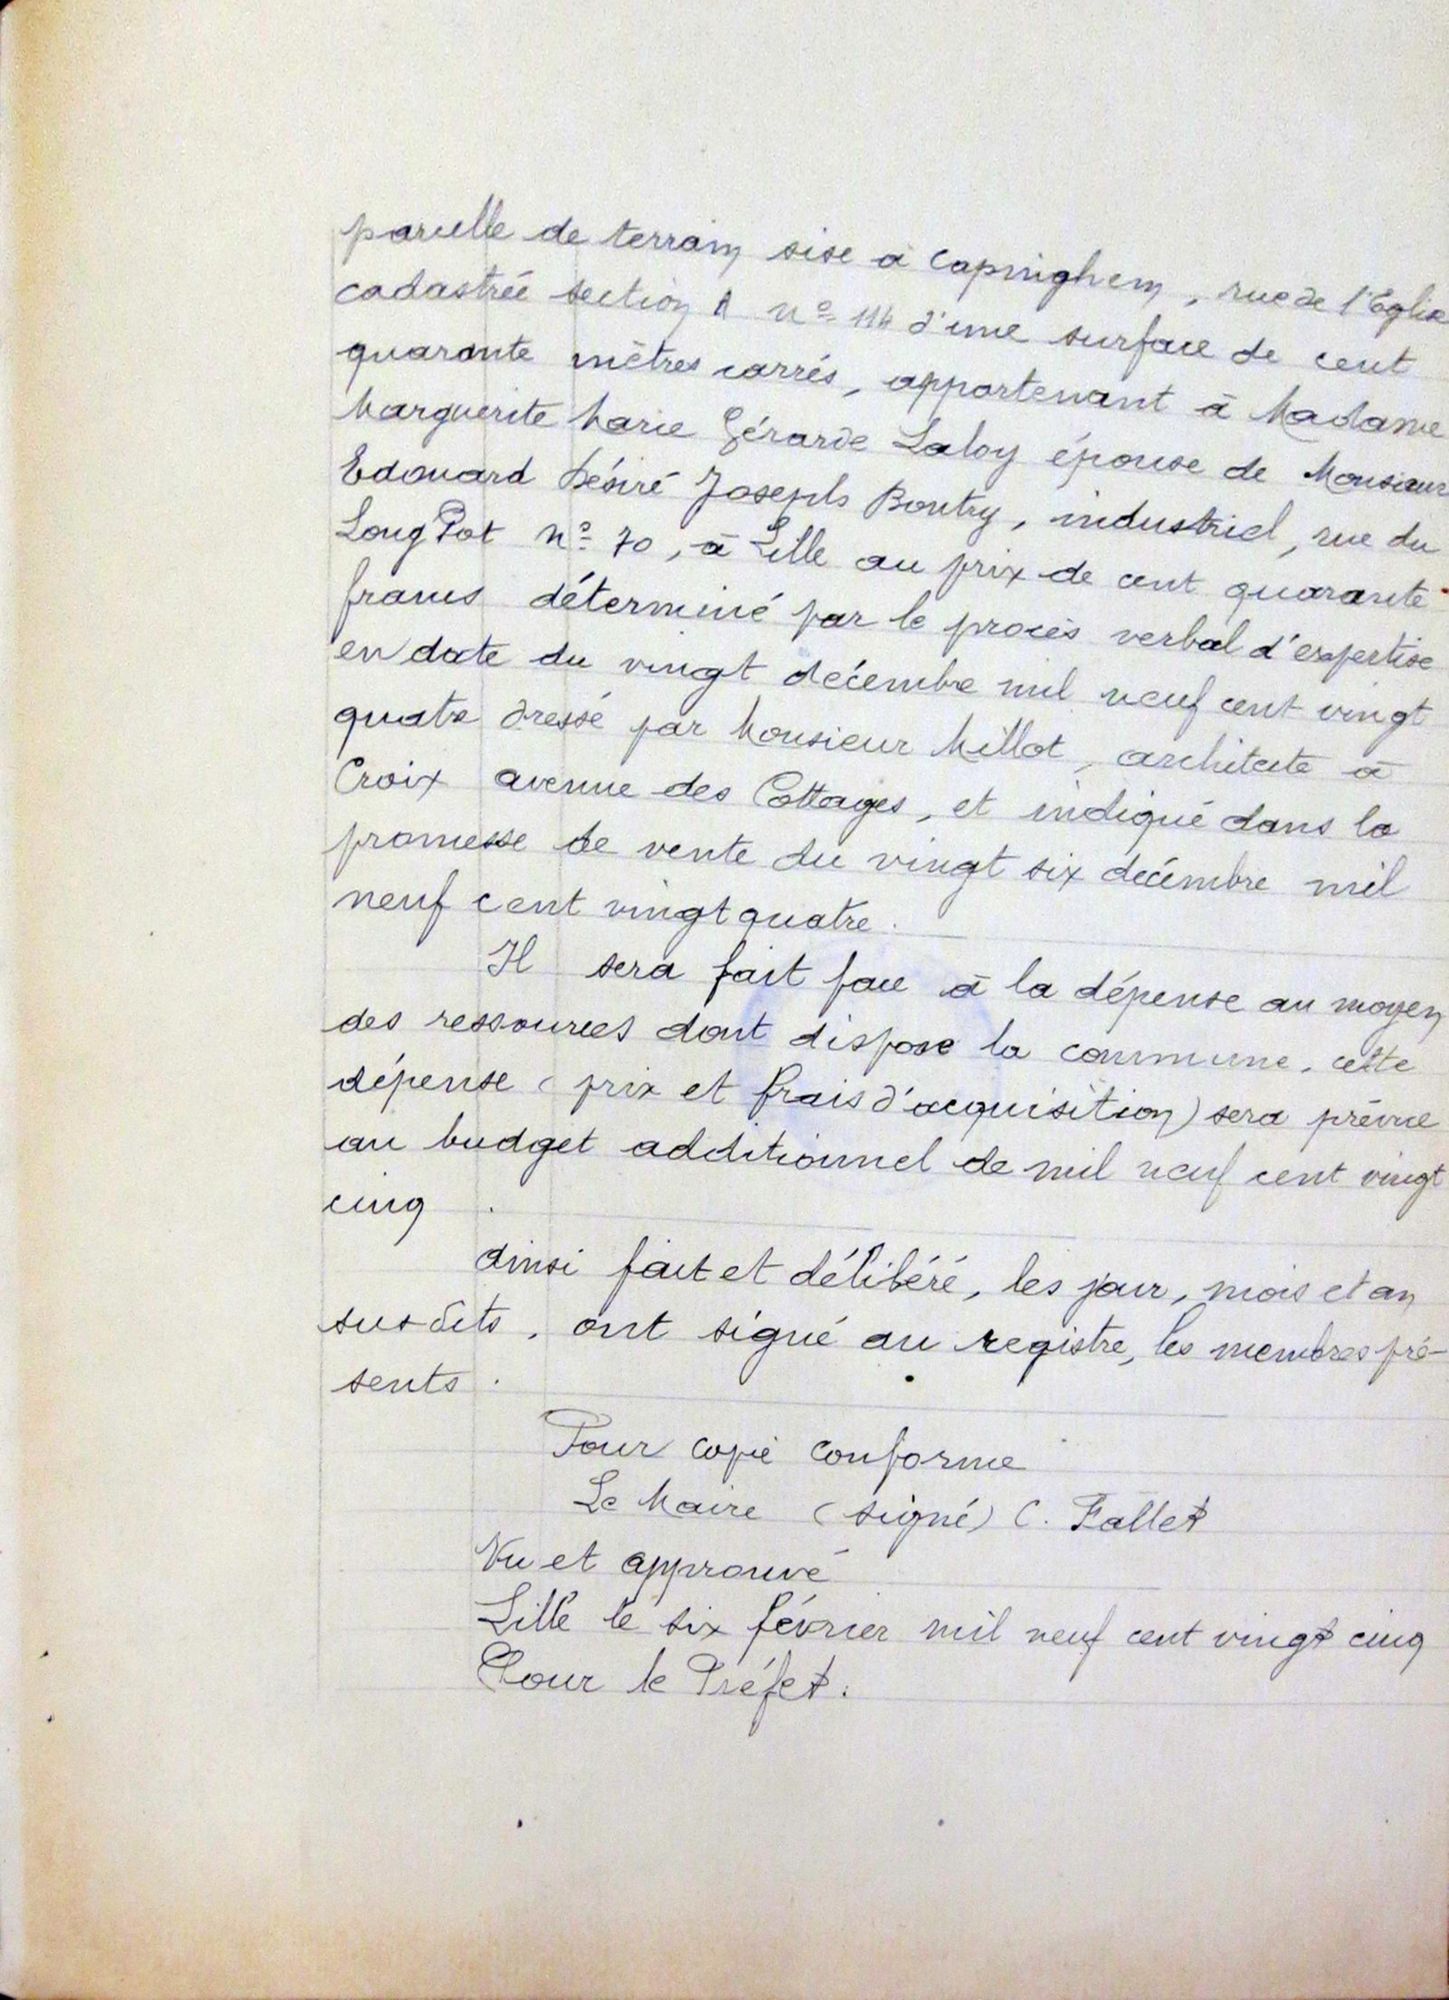 parcelle de terrain sise à Capinghem, rue de l'Eglise
cadastrée section A n° 114 d'une surface de cent
quarante mètres carrés, appartenant à Madame
Marguerite Marie Gérarde Laloy épouse de Monsieur
Edouard Désiré Joseph Boutry, industriel, rue du
Long Pot n° 70, à Lille au prix de cent quarante
francs déterminé par le procès verbal d'expertise
en date du vingt décembre mil neuf cent vingt
quatre dressé par Monsieur Millot, architecte à
Croix avenue des Cottages, et indiqué dans la
promesse de vente du vingt six décembre mil
neuf cent vingt quatre.
Il sera fait face à la dépense au moyen
des ressources dont dispose la commune, cette
dépense (prix et frais d'acquisition) sera prévue
au budget additionnel de mil neuf cent vingt
cinq.
ainsi fait et délibéré, les jour, mois et an
susdits, ont signé au registre, les membres pré-
sents.
Pour copie conforme
Le Maire (signé) C. Fallet
Vu et approuvé
Lille le six février mil neuf cent vingt cinq
Pour le Préfet.